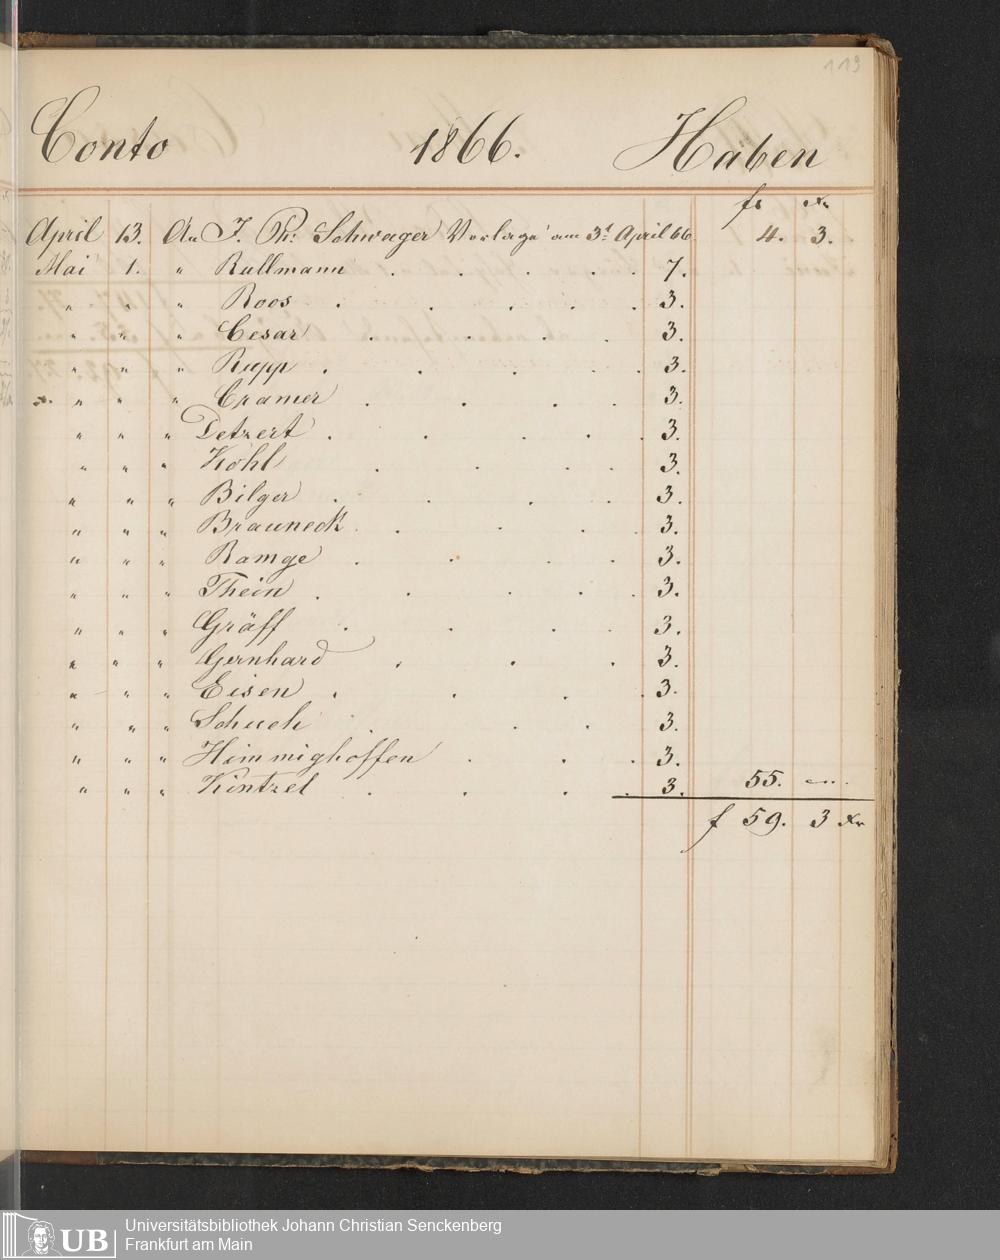 119
Conto 1866. Haben
fr xr
April 13. An J. Ph: Schwager Vorlage am 3t April 66 4. 3.
Mai 1. " Rullmann . . . . . 7.
" " " Roos . . . . . 3.
" " " Cesar . . . . 3.
" " " Rupp . . . . 3.
" " " Cramer . . . . 3.
" " " Detzert . . . . . 3.
" " " Kohl . . . . 3.
" " " Bilger . . . . 3.
" " " Brauneck . . . . 3.
" " " Ramge . . . . 3.
" " " Thein . . . . 3.
" " " Gräff . . . . 3.
" " " Gernhard . . . 3.
" " " Eisen . . . . 3.
" " " Schuch . . . 3.
" " " Himmighoffen . . . 3.
" " " Kintzel . . . . 3. 55. "
f 59. 3 xr
UB
Universitätsbibliothek Johann Christian Senckenberg
Frankfurt am Main